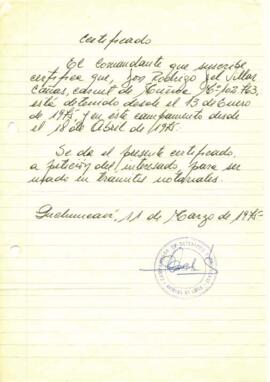 Certificado
El Comandante que suscribe,
certifica que, Don Rodrigo del Villar
Cañas, carnet de
está detenido desde el 13 de Enero
de 1975, y en este campamento desde
el 18 de Abril de 1975.
Se da el presente certificado,
a petición del interesado, para ser
usado en trámites notariales.
11 de Marzo de 1975